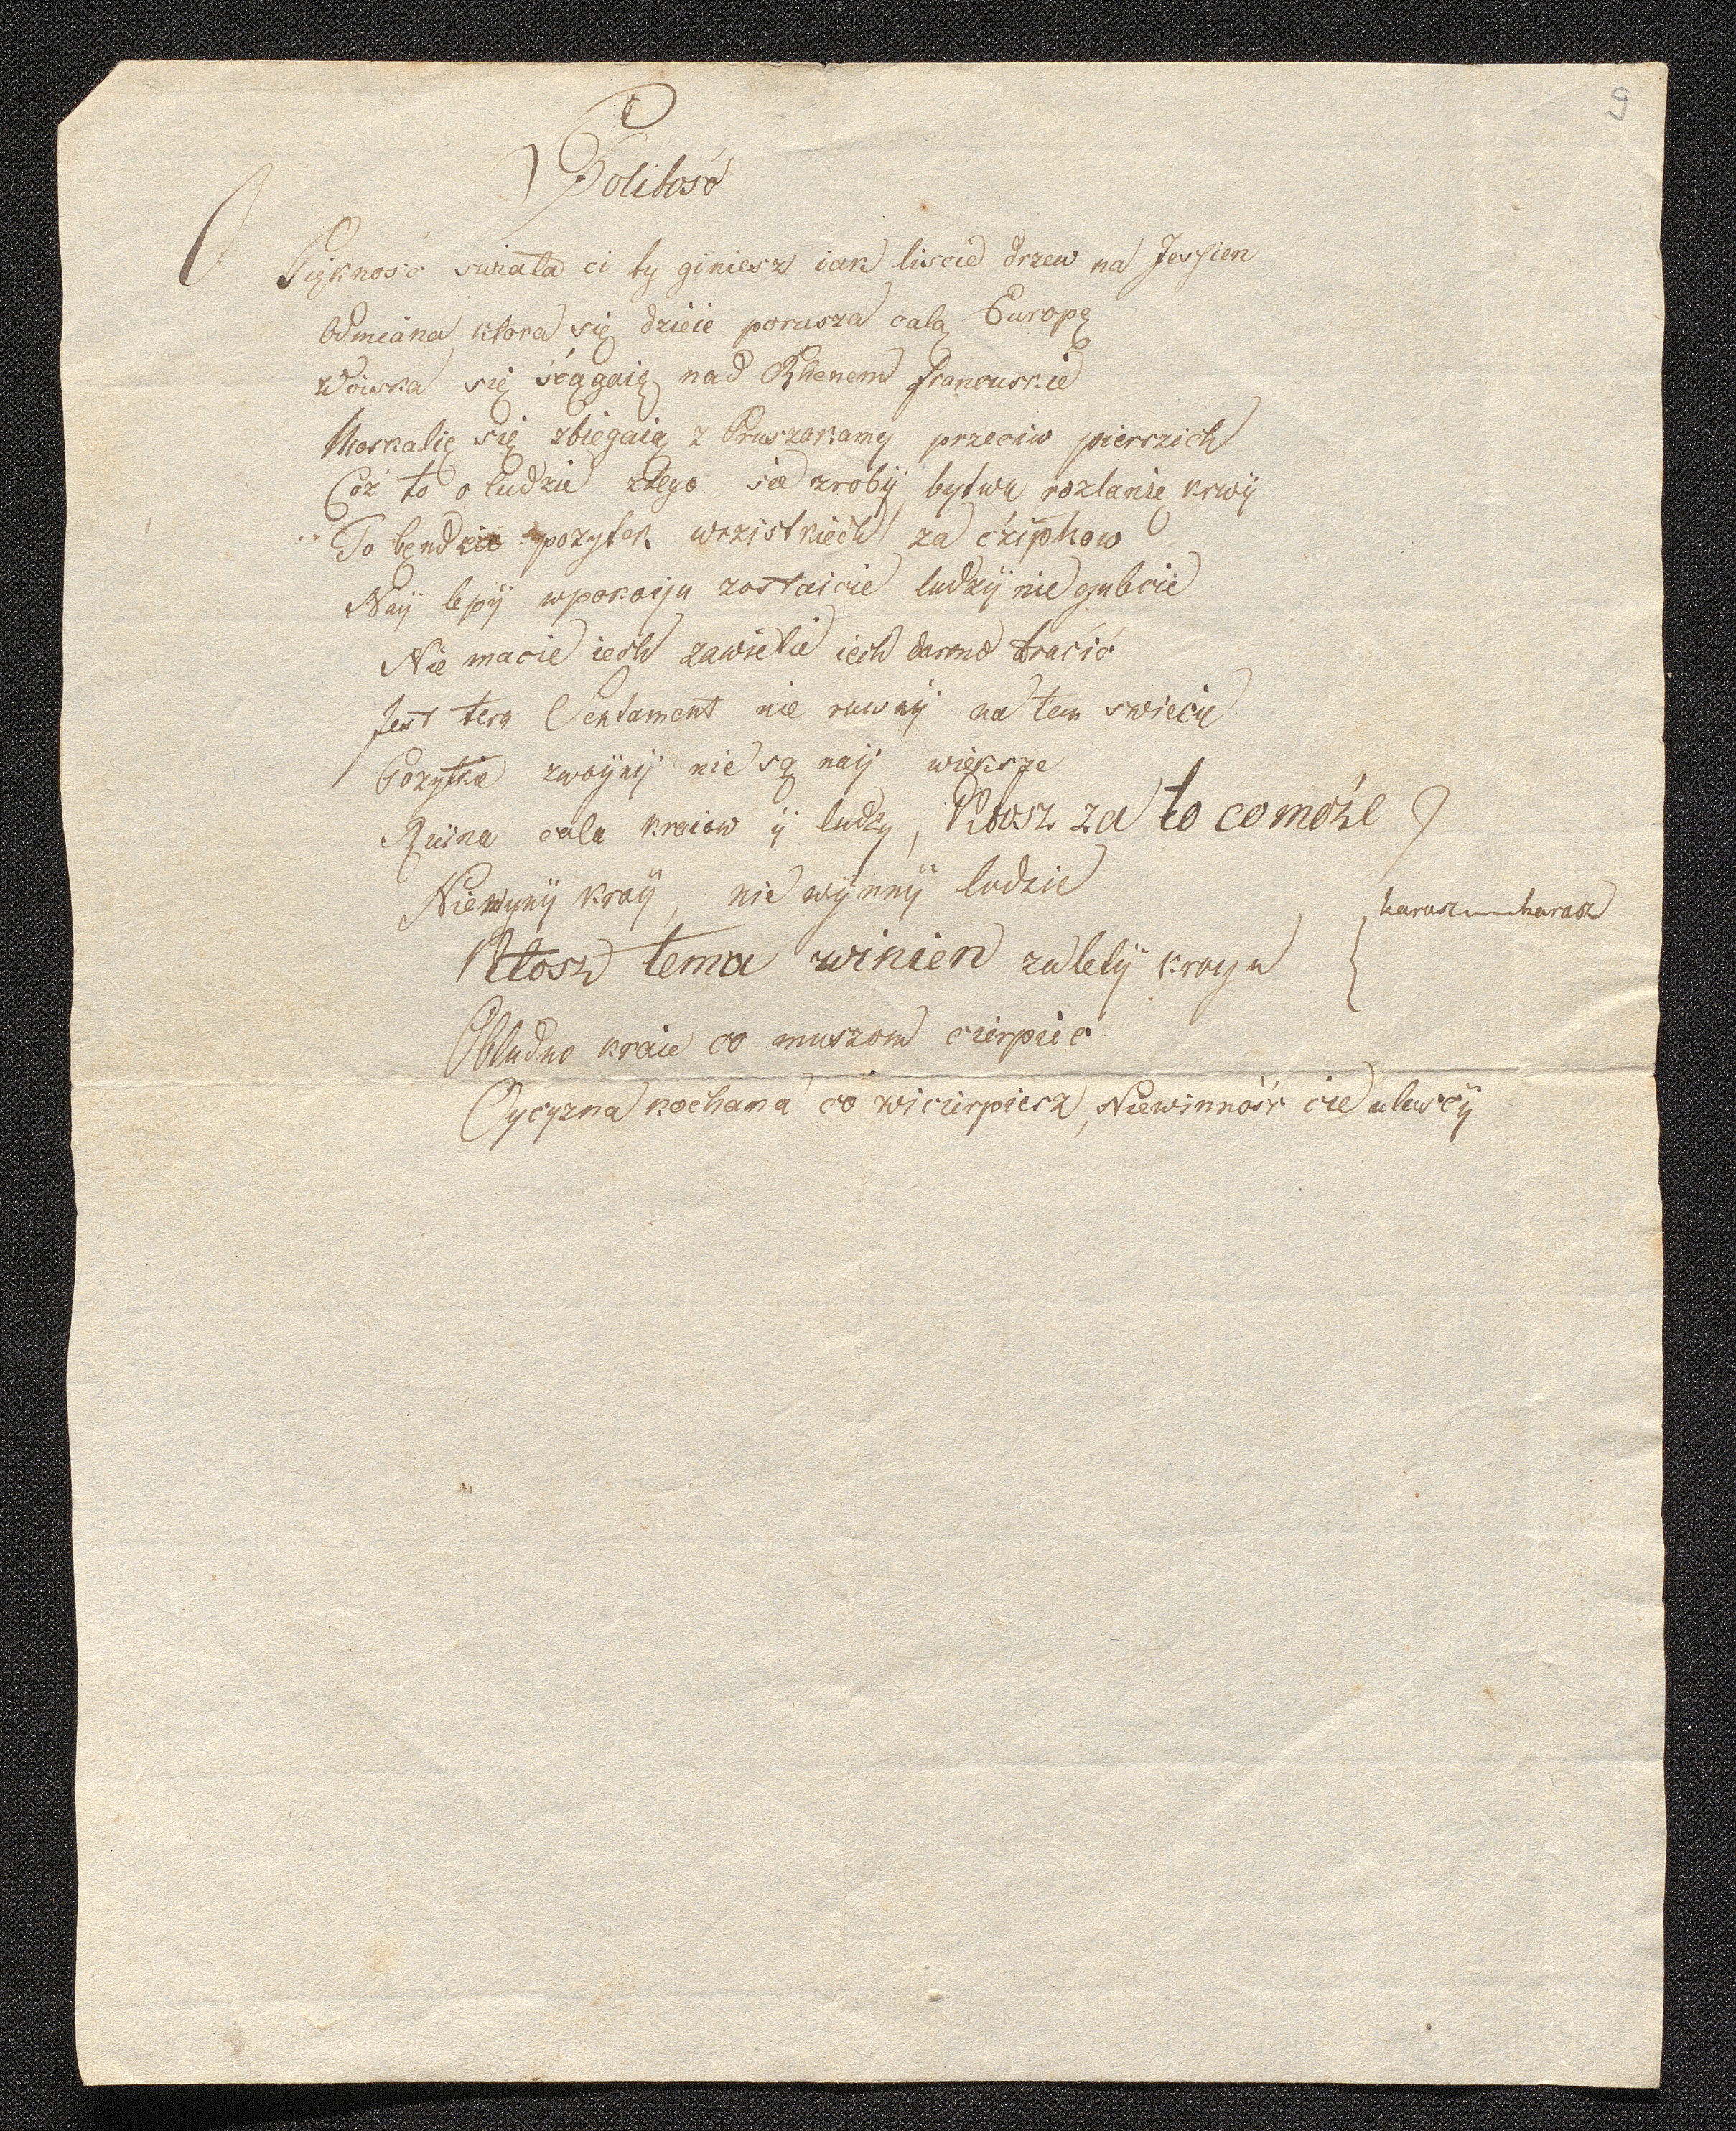 9
Politość
O Piękność swiata ci ty giniesz iak liscie drzew na Jessien
Odmiana ktora się dzieie porusza całą Europę
Woiska się ściągaią nad Rhenem francuskie
Moskalię się zbiegaią z Prusakamy przeciw pierszich
Cóż to o ludzie złego sie zrobÿ bytwa rozlanie krwÿ
To będzie pozytek wszistkiech za
Naÿ lepÿ wpokoiju zostaicie ludzÿ nie gubcie
Nie macie iech zawiele iech darmo tracić
Jest ten Sentament nie ruwnÿ na tem swiecie
Pozytkie zwoÿnÿ nie są naÿ wieksze
Ruina cala kraiow ÿ ludzy, Ktosz za to co może
Niewynÿ kraÿ, nie wÿnnÿ ludzie
Ktosz temu winien zaletÿ krayu
{ harasz harasz
Obludne kraie co muszom cierpieć
Oycyzna kochana co wicierpiesz, Niewinność cie